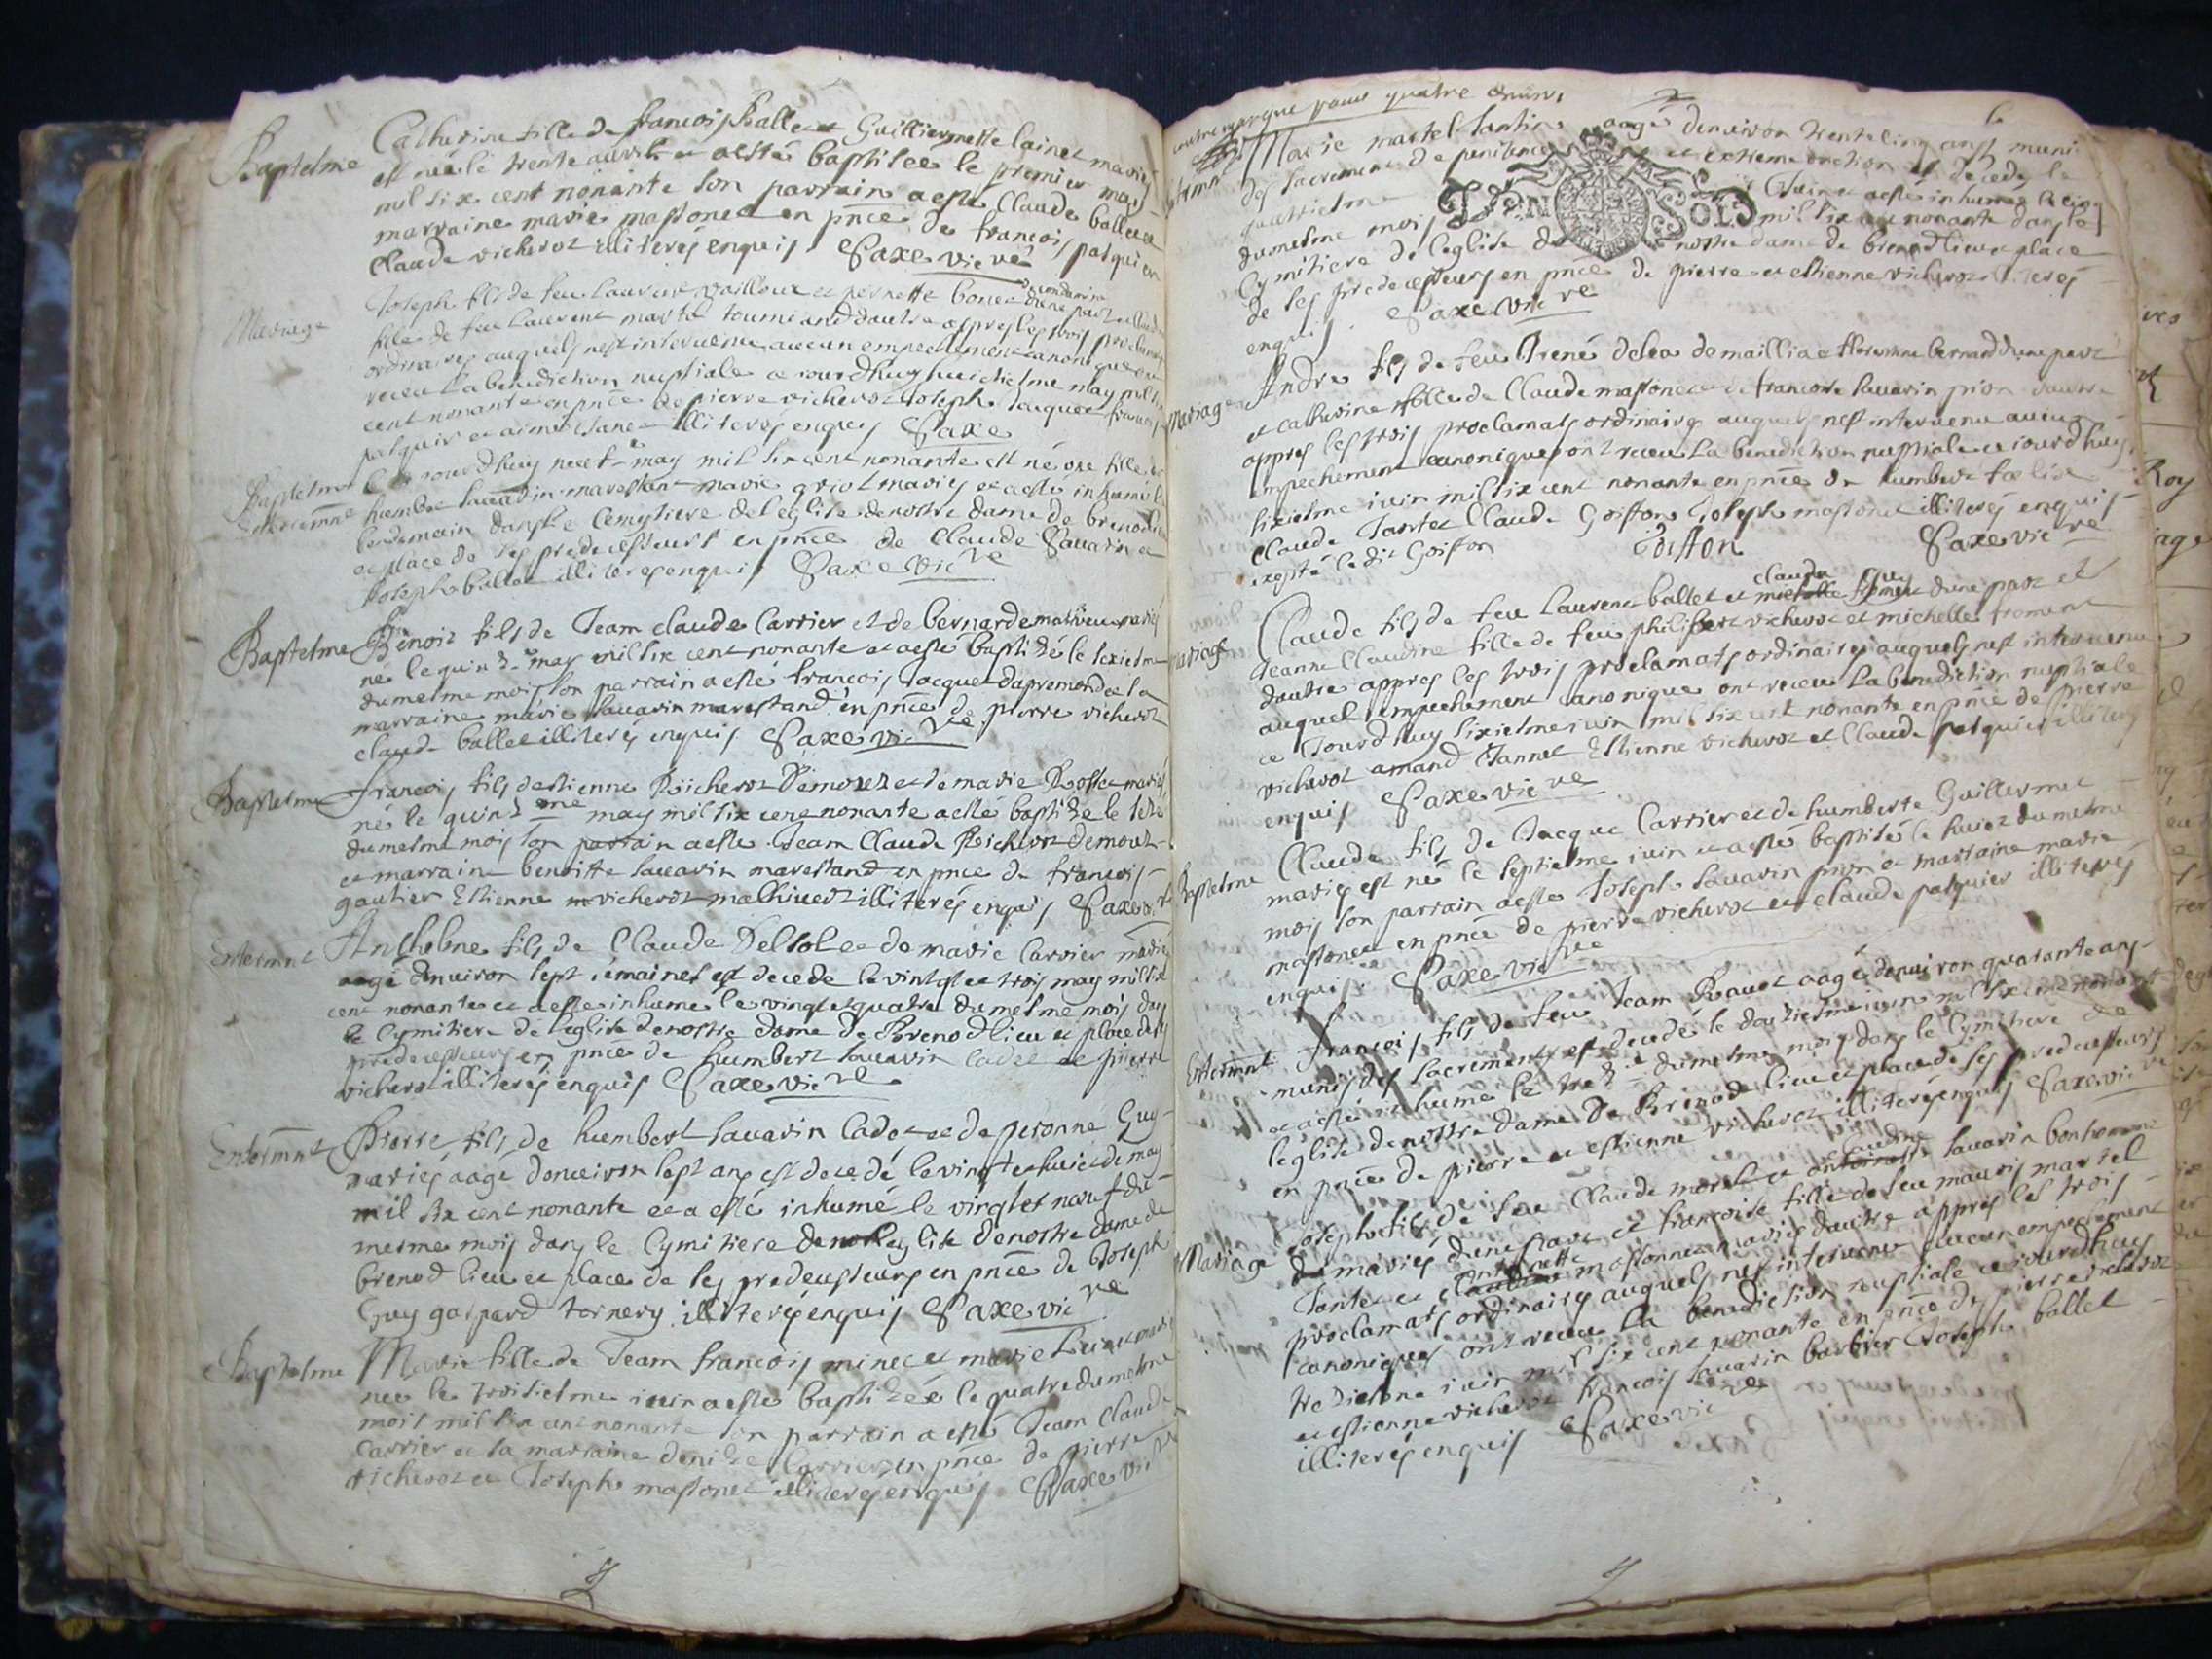 Baptesme Catherine fille de francois Ballet et Guilliermette lainet mariés
est née le trente avril et a esté baptisee le premier may
mil six cent nonante son parrain a esté Claude ballet et
marraine marie massonet en pnce de francois pasquier
Claude vicherot illiterés enquis Saxe vic re
Mariage Joseph fils de feu Laurent vailloux et pernette bonet dune part et
fille de feu Laurent martel tournier dautre appres les trois proclamats
ordinaires auquels nest intervenu aucun empechement canonique ont
receu la benediction nuptiale ce iourdhuy huictiesme may mil six
cent nonante en pnce de pierre vicherot Joseph Jacquet francois
pasquier et illiterés enquis Saxe
Baptesme Ce iourdhuy neuf may mil six cent nonante est né une fille de
et enterremnt humbert sauarin marestant marie griot mariés et a esté inhumé le
lendemain dans le Cemytiere de leglise de nostre dame de brenod lieu
et place de ses predecesseurs en pnce de Claude Sauarin et
Joseph ballet illiterés enquis Saxe vic re
Baptesme Benoit fils de Jean claude Carrier et de bernarde mathieu mariés
né le quinz me may mil six cent nonante et a esté baptizé le sexiesme
du mesme mois son parrain a esté francois Jacquet dapremond et la
marraine marie sauarin marestand en pnce de pierre vicherot
claude ballet illiterés enquis Saxe vic re
Baptesme francois fils destienne Richerot Demoux et de marie Rosset mariés
né le quinz me may mil six cent nonante a esté baptizé le
du mesme mois son parrain a esté Jean Claude Reicherot demoux
et marraine benoitte sauarin marestand en pnce de francois
gautier Estienne vicherot mathieu illiterés enquis Saxe vic re
Entermnt Anthelme fils de Claude Delsol et de marie Carrier mariés
aagé denuiron sept semaines est decede le vingt et trois may mil six
cent nonante et a esté inhumé le vingt et quatre du mesme mois dans
le Cymitiere de leglise de nostre dame de Brenod lieu et place de ses
predecesseurs en pnce de humbert sauarin Cadet et pierre
vicherot illiterés enquis Saxe vic re
Entermnt Pierre fils de humbert Sauarin Cadet et de peronne Guy
mariés aagé denuiron sept ans est decedé le vingt et huict de may
mil six cent nonante et a esté inhumé le vingt et neuf du
mesme mois dans le Cymitiere de leglise de nostre dame de
brenod lieu et place de ses predecesseurs en pnce de Joseph
Guy gaspard tornery illiterés enquis Saxe vic re
Baptesme Marie fille de Jean francois minet et marie mariés
nee le troisiesme iuin a esté baptizée le quatre du mesme
mois mil six cent nonante son parrain a esté Jean Claude
Carrier et la marraine denize Carrier en pnce de pierre
vicherot et Joseph massonet illiterés enquis Saxe vic re
contremarque pour quatre
Entermnt Marie martel tantin aagée denuiron trente cinq ans muni
des sacrements de penitence et extreme onction est decedé le
quatriesme Iuin et a esté inhumée le cinq
du mesme mois mil six cent nonante dans le
Cymitiere de leglise de nostre dame de brenod lieu et place
de ses predecesseurs en pnce de pierre et estienne vicherot illiterés
enquis Saxe vic re
Mariage Andre fils de feu René delea de maillia et bernard dune part
et catherine fille de Claude massonet et de francoise sauarin prion dautre
appres les trois proclamats ordinaires auquels nest intervenu aucun
empechement canonique ont receu la benediction nuptiale ce iourdhuy
sixiesme iuin mil six cent nonante en pnce de humbert
Claude Tantet Claude Goiffon Joseph massonet illiterés enquis
excepté ledit Goiffon Goiffon Saxe vic re
mariage Claude fils de feu Laurent ballet et claudine Guy dune part et
Jeanne Claudine fille de feu philibert vicherot et michelle froment
dautre appres les trois proclamats ordinaires auquels nest intervenu
auquel empechement canonique ont receu la benediction nuptiale
ce Jourdhuy sixiesme iuin mil six cent nonante en pnce de pierre
vicherot amand Jannet Estienne vicherot et Claude pasquier illiterés
enquis Saxe vic re
Baptesme Claude fils de Jacque Carrier et de humberte Guillermet
mariés est né le septiesme iuin et a esté baptisé le huict du mesme
mois son parrain a esté Joseph Sauarin prion et marraine marie
massonet en pnce de pierre vicherot et claude pasquier illiterés
enquis Saxe vic re
Entermnt francois fils de feu Jean Rauot aagé denuiron quarante ans
munis des sacrements est decedé le douziesme iuin mil six cent nonante
et a esté inhumé le trez me du mesme mois dans le Cymitiere de
leglise de nostre dame De Brenod lieu et place de ses predecesseurs
en pnce de pierre et estienne vicherot illiterés enquis Saxe vic re
Mariage Joseph fils de feu Claude morel et claudine sauarin bonhomme
mariés dune part et francoise fille de feu mauris martel
Tantet et antoinette massonnet mariés dautre appres les trois
proclamats ordinaires auquels nest intervenu aucun empechement
canonique ont receu la benediction nuptiale ce iourdhuy
treziesme iuin mil six cent nonante en pnce de pierre vicherot
et estienne vicherot francois sauarin barbier Joseph ballet
illiterés enquis Saxe vic re